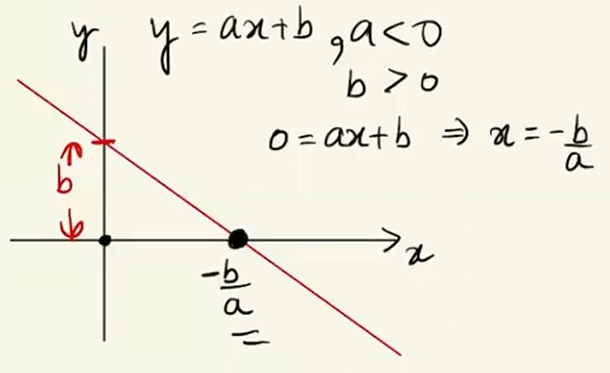 y y = ax+b , a < 0
b > 0
0 = ax+b ⇒ x = -b/a
b
x
-b/a